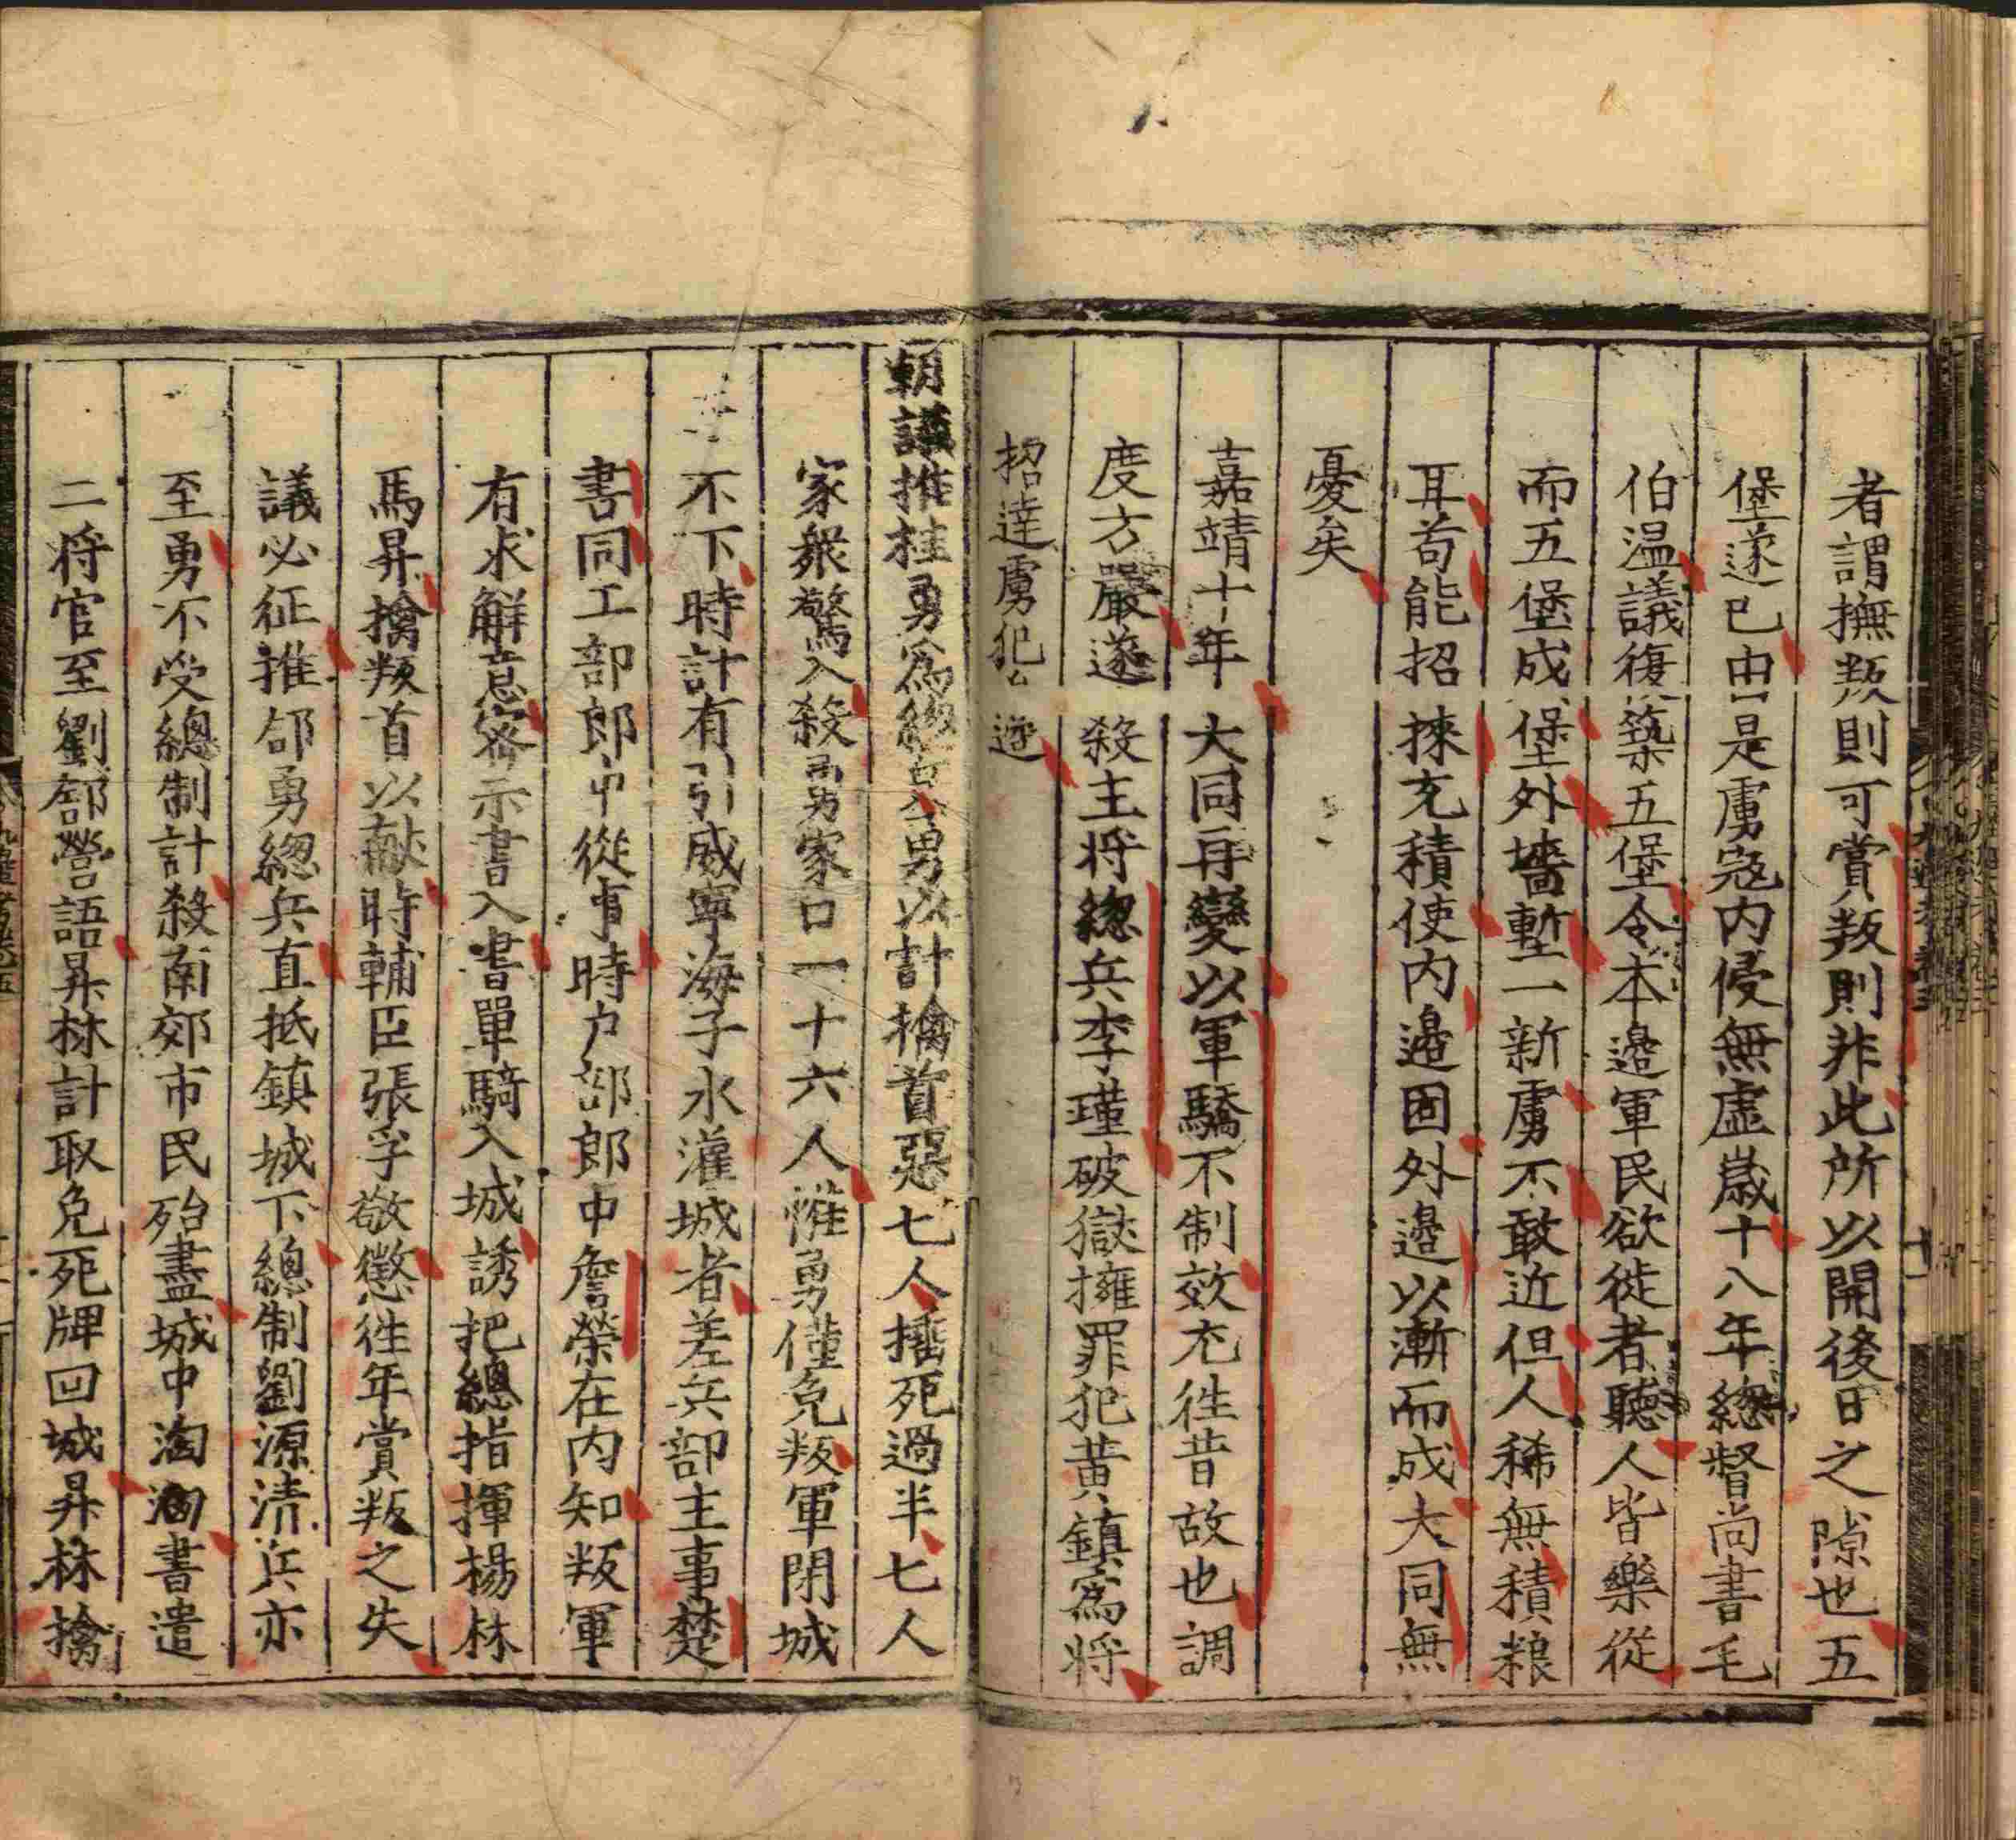 者謂撫叛則可賞叛則非此所以開後日之隙也五
堡遂已由是虜宼内侵無虛歲十八年總督尚書毛
伯温議復築五堡令本邉軍民欲徙者聽人皆樂從
而五堡成堡外墻塹一新虜不敢近但人稀無積粮
耳茍能招捸充積使内邉固外邉以漸而成大同無
憂矣
嘉靖十年大同再變以軍驕不制效尤徃昔故也調
度方嚴遂殺主将緫兵李瑾破獄擁罪犯黄鎮爲将
招達虜犯邉
朝議推桂勇爲緫兵勇以計擒首惡七人捶死過半七人
家衆驚入殺勇家口一十六人惟勇僅免叛軍閉城
不下時計有引威寧海子水灌城者差兵部主事楚
書同工部郎中從事時户部郎中詹榮在内知叛軍
有求解意宻示書入書單騎入城誘把總指揮楊林
馬昇擒叛首以献時輔臣張孚敬懲徃年賞叛之失
議必征推郤勇緫兵直抵鎮城下總制劉源清兵亦
至勇不受總制計殺南郊市民殆盡城中洶洶書遣
二将官至劉郤營語昇林計取免死牌回城昇林擒